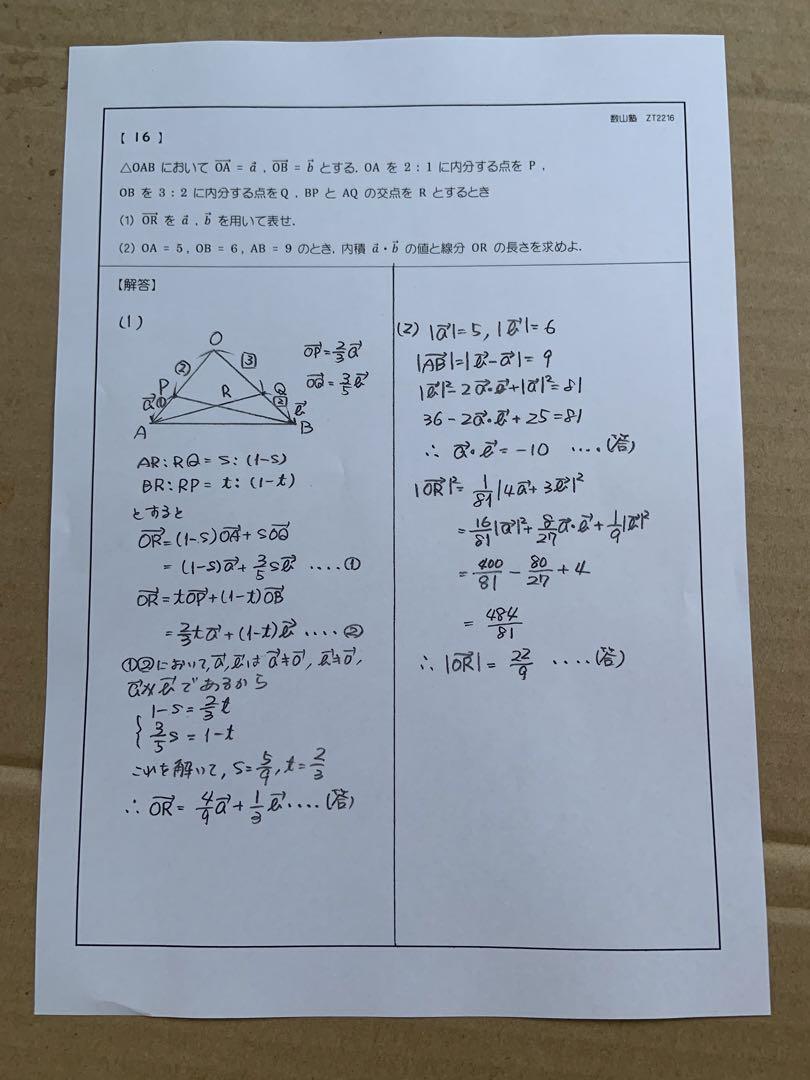 数山塾 ZT2216
【 16 】
△OAB において OA→ = a→ , OB→ = b→ とする. OA を 2 : 1 に内分する点を P ,
OB を 3 : 2 に内分する点を Q , BP と AQ の交点を R とするとき
(1) OR→ を a→ , b→ を用いて表せ.
(2) OA = 5 , OB = 6 , AB = 9 のとき, 内積 a→・b→ の値と線分 OR の長さを求めよ.
【解答】
(1)
O
② 3
P R Q
a→ ① 2 b→
A B
OP→ = 2/3 a→
OQ→ = 3/5 b→
AR : RQ = s : (1-s)
BR : RP = t : (1-t)
とすると
OR→ = (1-s)OA→ + sOQ→
= (1-s)a→ + 3/5 s b→ ‥‥①
OR→ = tOP→ + (1-t)OB→
= 2/3 t a→ + (1-t)b→ ‥‥②
①②において, a→, b→は a→≠0→, b→≠0→,
a→∦b→であるから
{ 1-s = 2/3 t
3/5 s = 1-t
これを解いて, s = 5/9, t = 2/3
∴ OR→ = 4/9 a→ + 1/3 b→ ‥‥(答)
(2) |a→| = 5, |b→| = 6
|AB→| = |b→-a→| = 9
|b→|² - 2a→・b→ + |a→|² = 81
36 - 2a→・b→ + 25 = 81
∴ a→・b→ = -10 ‥‥(答)
|OR→|² = 1/81 |4a→ + 3b→|²
= 16/81 |a→|² + 8/27 a→・b→ + 1/9 |b→|²
= 400/81 - 80/27 + 4
= 484/81
∴ |OR→| = 22/9 ‥‥(答)